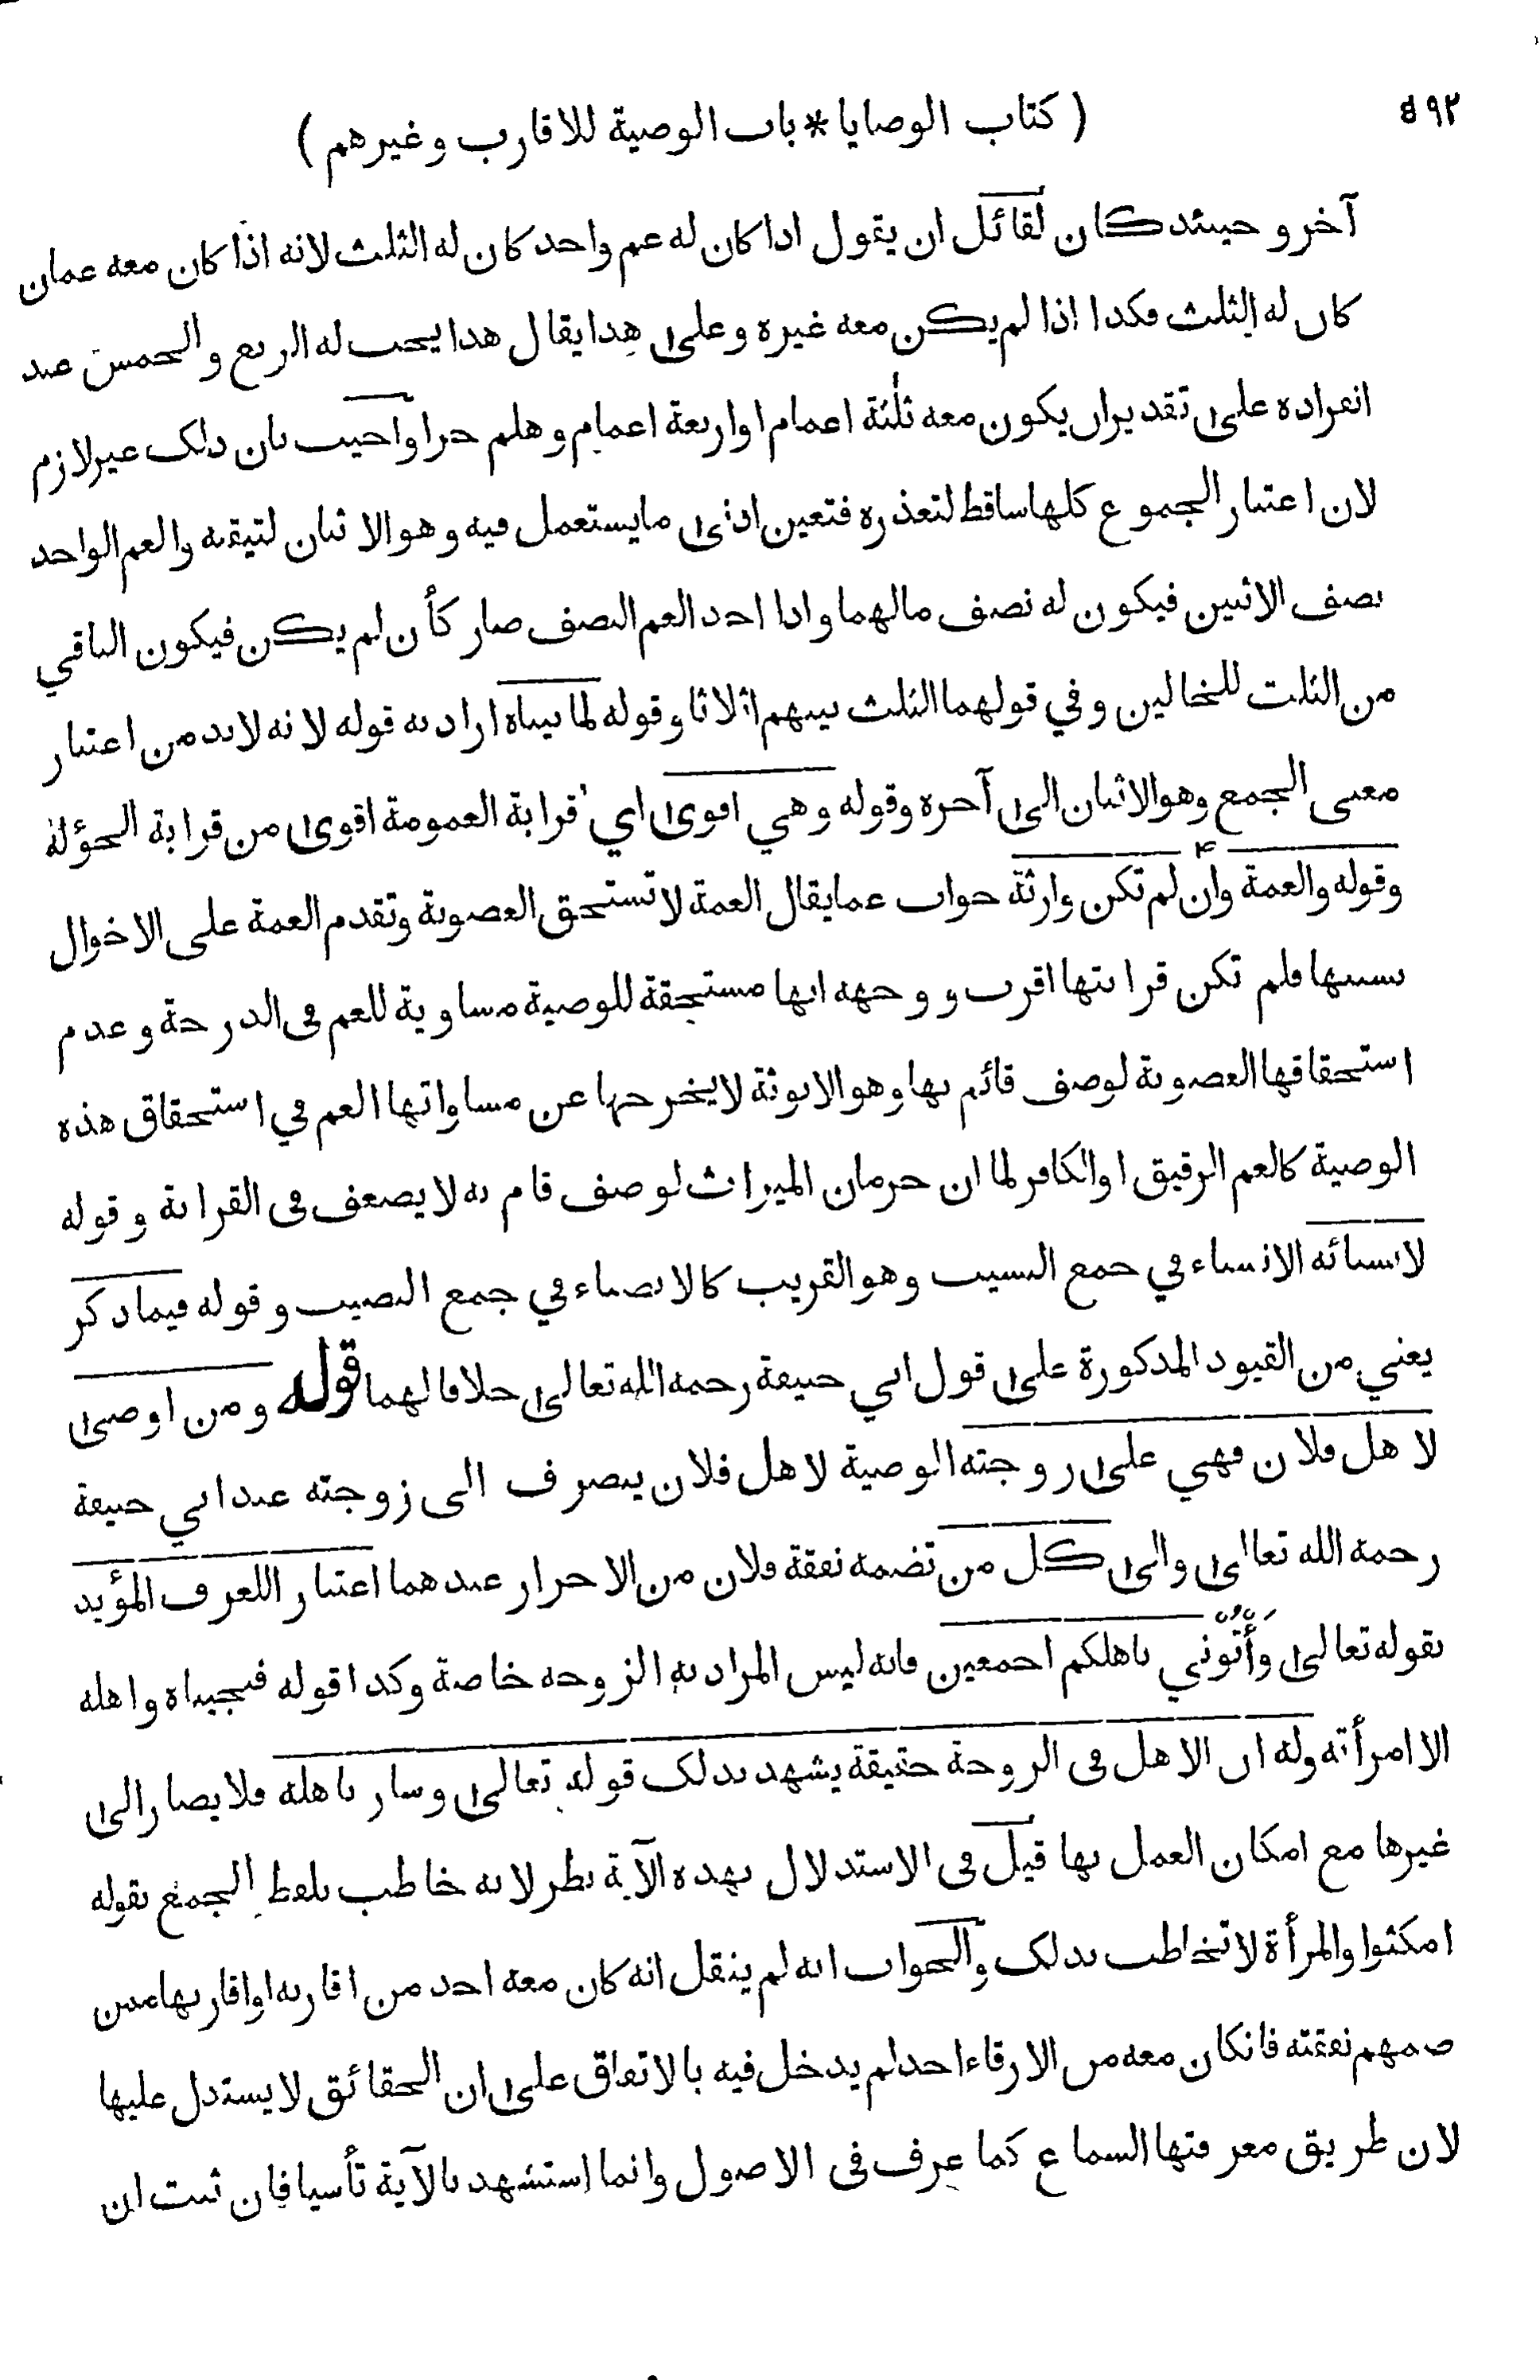 ٥٩٢
( كتاب الوصايا * باب الوصية للاقارب وغيرهم )
آخر وحينئذ كان لقائل ان يقول اذا كان له عم واحد كان له الثلث لانه اذا كان معه عمان
كان له الثلث فكذا اذا لم يكن معه غيره وعلى هذا يقال هذا يجب له الربع والخمس عند
انفراده على تقدير ان يكون معه ثلثة اعمام او اربعة اعمام وهلم جرا واجيب بان ذلك غير لازم
لان اعتبار الجموع كلها ساقط لتعذره فتعين ادنى ما يستعمل فيه وهو الاثنان لتيقنه والعم الواحد
نصف الاثنين فيكون له نصف ما لهما واذا اخذ العم النصف صار كأن لم يكن فيكون الباقي
من الثلث للخالين وفي قولهما الثلث بينهم اثلاثا وقوله لما بيناه اراد به قوله لانه لابد من اعتبار
معنى الجمع وهو الاثنان الى آخره وقوله وهي اقوى اي قرابة العمومة اقوى من قرابة الخؤلة
وقوله والعمة وان لم تكن وارثة جواب عما يقال العمة لا تستحق العصوبة وتقدم العمة على الاخوال
بسببها فلم تكن قرابتها اقرب ووجهه انها مستحقة للوصية مساوية للعم في الدرجة وعدم
استحقاقها العصوبة لوصف قائم بها وهو الانوثة لا يخرجها عن مساواتها العم في استحقاق هذه
الوصية كالعم الرقيق او الكافر لما ان حرمان الميراث لوصف قام به لا يضعف في القرابة وقوله
لانسبائه الانسباء في جمع النسيب وهو القريب كالانصباء في جمع النصيب وقوله فيما ذكر
يعني من القيود المذكورة على قول ابي حنيفة رحمه الله تعالى خلافا لهما قوله ومن اوصى
لاهل فلان فهي على زوجته الوصية لاهل فلان ينصرف الى زوجته عند ابي حنيفة
رحمه الله تعالى والى كل من تضمه نفقة فلان من الاحرار عندهما اعتبار اللعرف المؤيد
بقوله تعالى وَأْتُوْنِي باهلكم اجمعين فانه ليس المراد به الزوجه خاصة وكذا قوله فنجيناه واهله
الا امرأته وله ان الاهل في الزوجة حقيقة يشهد بذلك قوله تعالى وسار باهله فلا يصار الى
غيرها مع امكان العمل بها قيل في الاستدلال بهذه الآية نظر لانه خاطب بلفظ الجمع بقوله
امكثوا والمرأة لا تخاطب بذلك والجواب انه لم ينقل انه كان معه احد من اقاربه او اقاربها ممن
ضمهم نفقته فانكان معه من الارقاء احد لم يدخل فيه بالاتفاق على ان الحقائق لا يستدل عليها
لان طريق معرفتها السماع كما عرف في الاصول وانما استشهد بالآية تأسيا فان ثبت ان